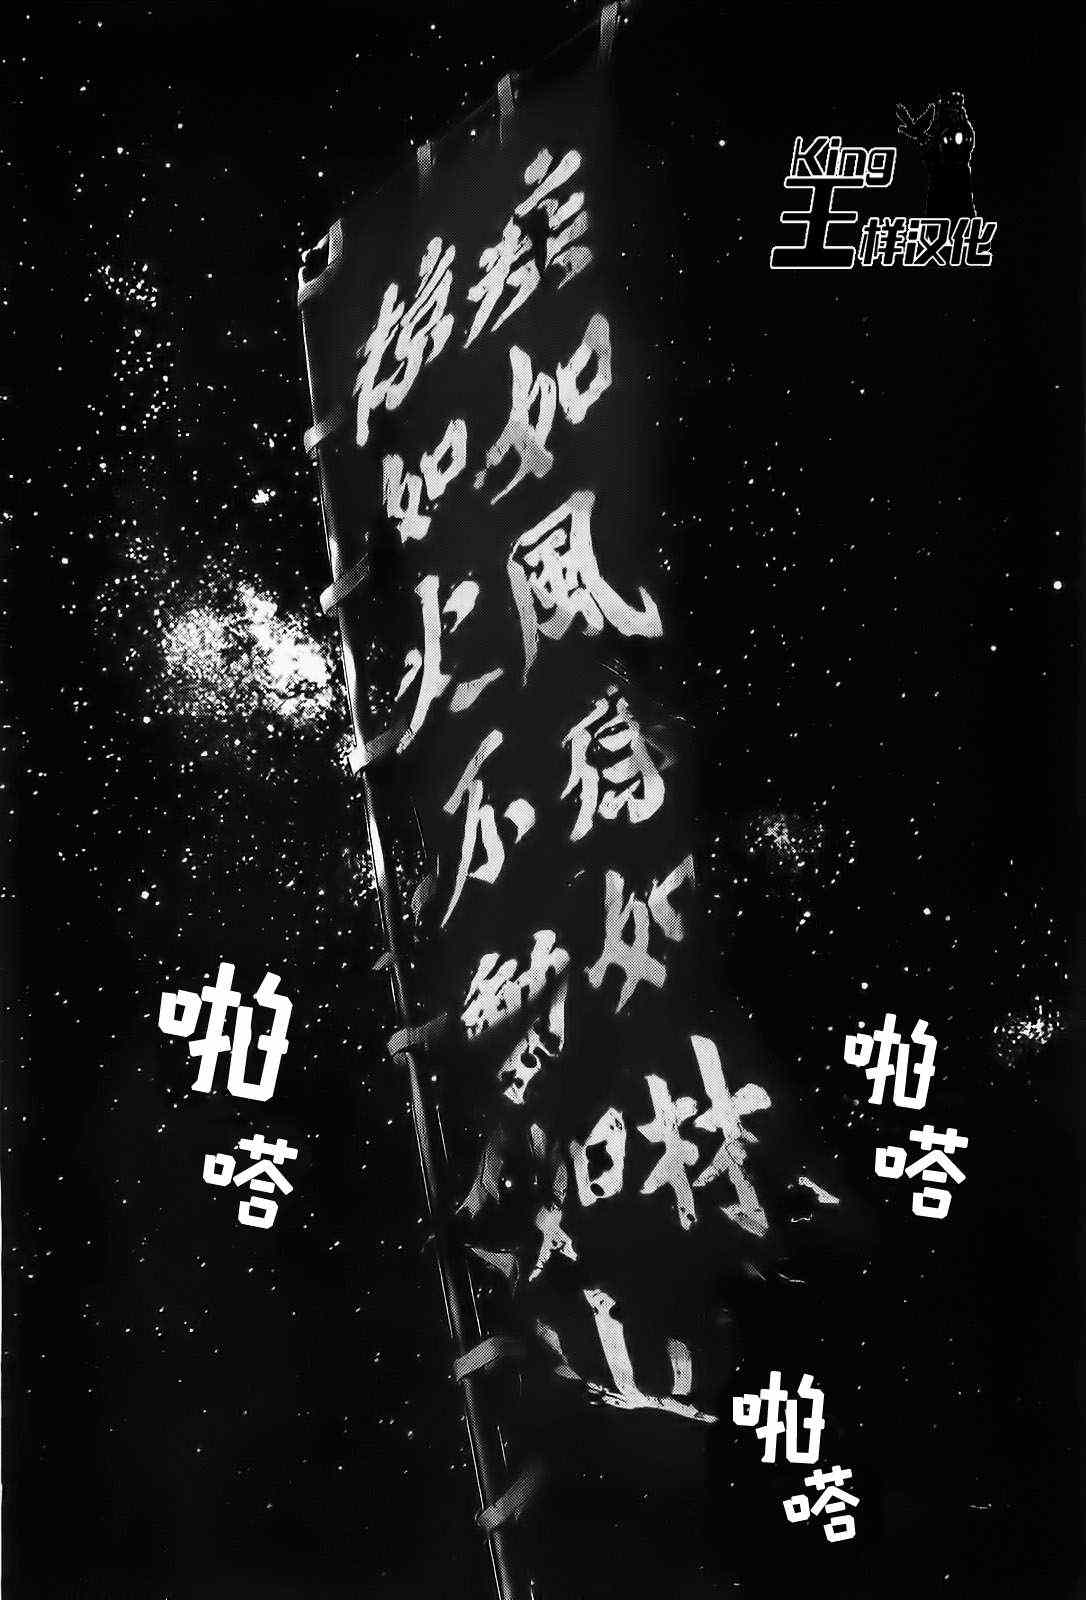 King
王样汉化
疾如風徐如林
掠如火不動如山
啪嗒
啪嗒
啪嗒